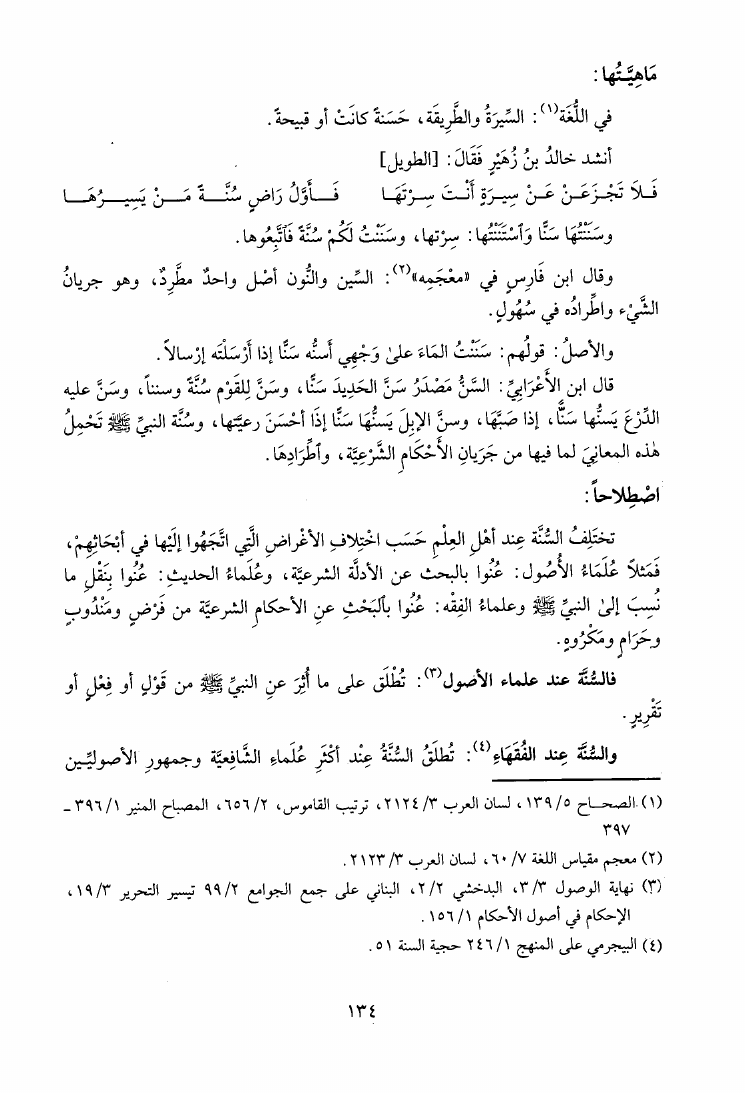 مَاهِيَّتُها:
في اللُّغَة(١): السِّيرَةُ والطَّرِيقَة، حَسَنةً كانَتْ أو قبيحةً.
أنشد خالدُ بنُ زُهَيْرٍ فَقَالَ: [الطويل]
فَلاَ تَجْزَعَنْ عَنْ سِيرَةٍ أَنْتَ سِرْتَهَا فَأَوَّلُ رَاضٍ سُنَّةً مَنْ يَسِيرُهَا
وسَنَنْتُهَا سَنًّا وَٱسْتَنَنْتُها: سِرْتها، وسَنَنْتُ لَكُمْ سُنَّةً فَٱتَّبِعُوها.
وقال ابن فَارِسٍ في «معْجَمِه»(٢): السِّين والنُّون أصْل واحدٌ مطَّرِدٌ، وهو جريانُ
الشَّيْء واطِّرادُه في سُهُولٍ.
والأصلُ: قولُهم: سَنَنْتُ المَاءَ علىٰ وَجْهِي أَسنُّه سَنًّا إذا أَرْسَلْتَه إرْسالاً.
قال ابن الأعْرَابِيِّ: السَّنُّ مَصْدَرُ سَنَّ الحَدِيدَ سَنًّا، وسَنَّ لِلقَوْم سُنَّةً وسنناً، وسَنَّ عليه
الدِّرْعَ يَسنُّها سَنًّا، إذا صَبَّهَا، وسنَّ الإبِلَ يَسنُّهَا سَنًّا إذَا أحْسَنَ رعيَّتها، وسُنَّة النبيِّ ﷺ تَحْمِلُ
هٰذه المعانِيَ لما فيها من جَرَيانِ الأحْكَامِ الشَّرْعِيَّة، وٱطِّرَادِهَا.
اصْطِلاحاً:
تختَلِفُ السُّنَّة عِند أهْلِ العِلْمِ حَسَب اخْتِلافِ الأغْراضِ الَّتِي اتَّجَهُوا إلَيْها في أبْحَاثِهِمْ،
فَمَثلاً عُلَمَاءُ الأُصُول: عُنُوا بالبحث عن الأدلَّة الشرعيَّة، وعُلَماءُ الحديثِ: عُنُوا بِنَقْلِ ما
نُسِبَ إلىٰ النبيِّ ﷺ وعلماءُ الفِقْه: عُنُوا بٱلبَحْثِ عنِ الأحكامِ الشرعيَّة من فَرْضٍ ومَنْدُوبٍ
وحَرَامٍ ومَكْرُوهٍ.
فالسُّنَّة عند علماء الأصول(٣): تُطْلَق على ما أُثِرَ عنِ النبيِّ ﷺ من قَوْلٍ أو فِعْلٍ أو
تَقْرِيرٍ.
والسُّنَّة عِند الفُقَهَاءِ(٤): تُطلَقُ السُّنَّةُ عِنْد أكْثَرِ عُلَماءِ الشَّافِعيَّة وجمهورِ الأصوليِّين
(١) الصحاح ٥/ ١٣٩، لسان العرب ٣/ ٢١٢٤، ترتيب القاموس، ٢/ ٦٥٦، المصباح المنير ١/ ٣٩٦ ـ
٣٩٧
(٢) معجم مقياس اللغة ٧/ ٦٠، لسان العرب ٣/ ٢١٢٣.
(٣) نهاية الوصول ٣/ ٣، البدخشي ٢/ ٢، البناني على جمع الجوامع ٢/ ٩٩ تيسير التحرير ٣/ ١٩،
الإحكام في أصول الأحكام ١/ ١٥٦.
(٤) البيجرمي على المنهج ١/ ٢٤٦ حجية السنة ٥١.
١٣٤